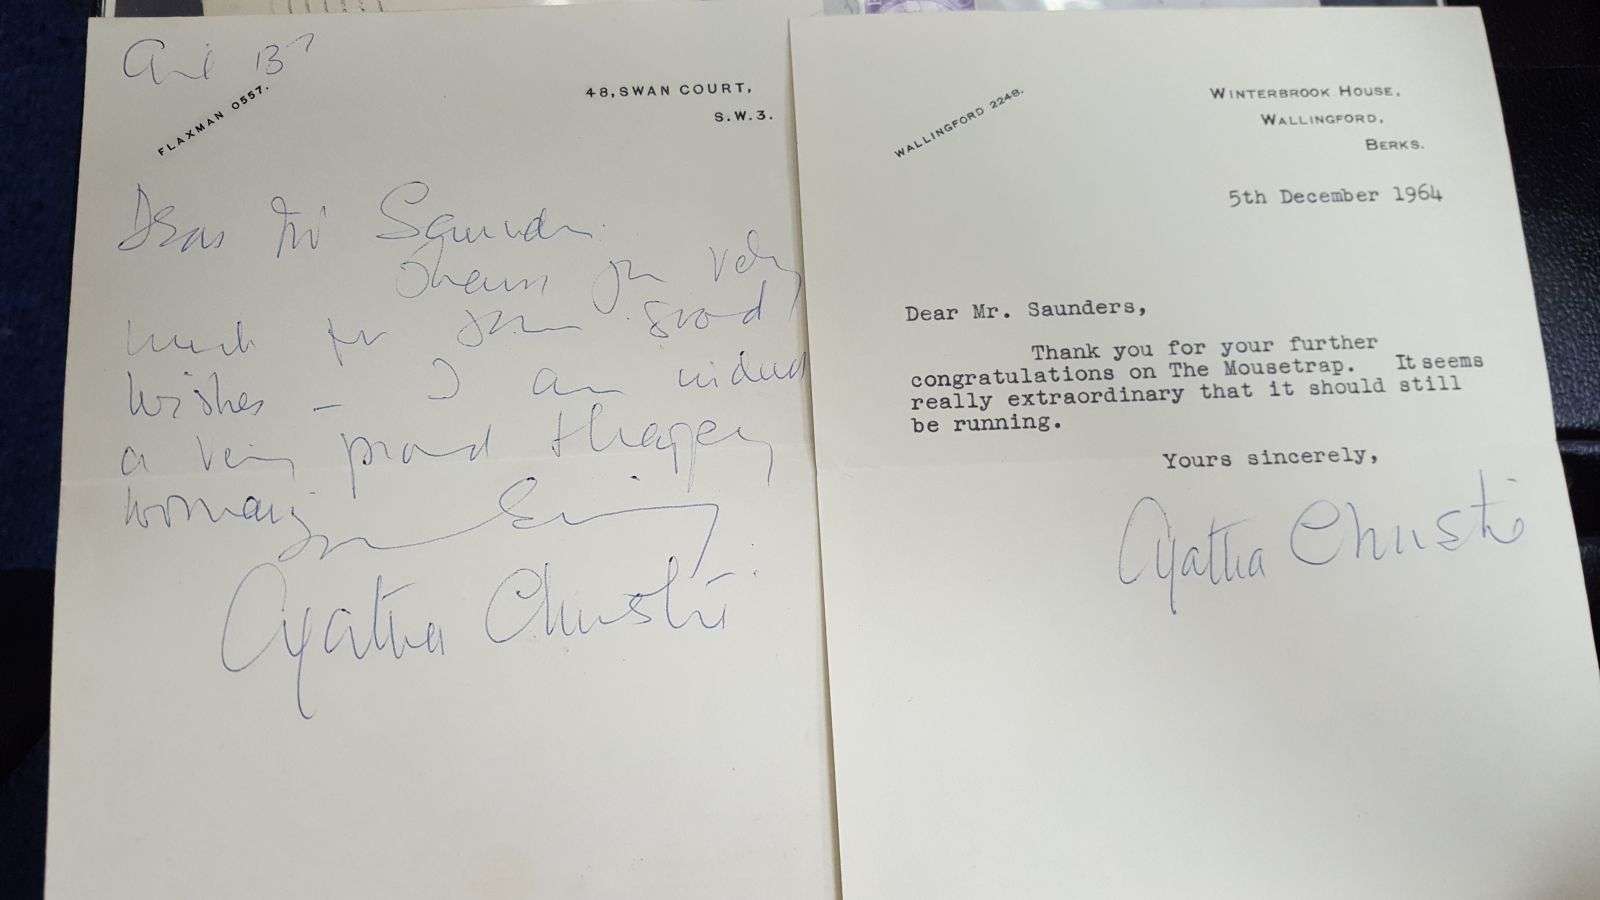 April 13th
FLAXMAN 0557.
48, SWAN COURT,
S.W.3.
Dear Mr Saunders.
Thank you very
much for your good
wishes - I am indeed
a very proud & happy
woman.
Yours Sincerely
Agatha Christie
WALLINGFORD 2248.
WINTERBROOK HOUSE,
WALLINGFORD,
BERKS.
5th December 1964
Dear Mr. Saunders,
Thank you for your further
congratulations on The Mousetrap. It seems
really extraordinary that it should still
be running.
Yours sincerely,
Agatha Christie